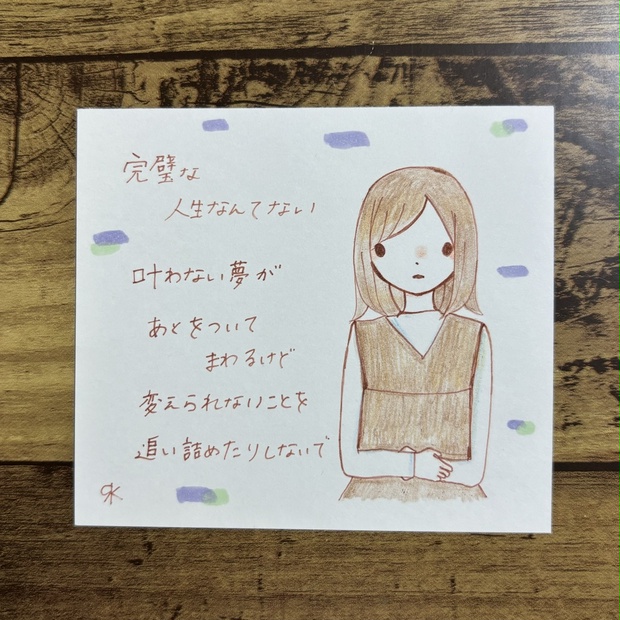 完璧な
人生なんてない
叶わない夢が
あとをついて
まわるけど
変えられないことを
追い詰めたりしないで